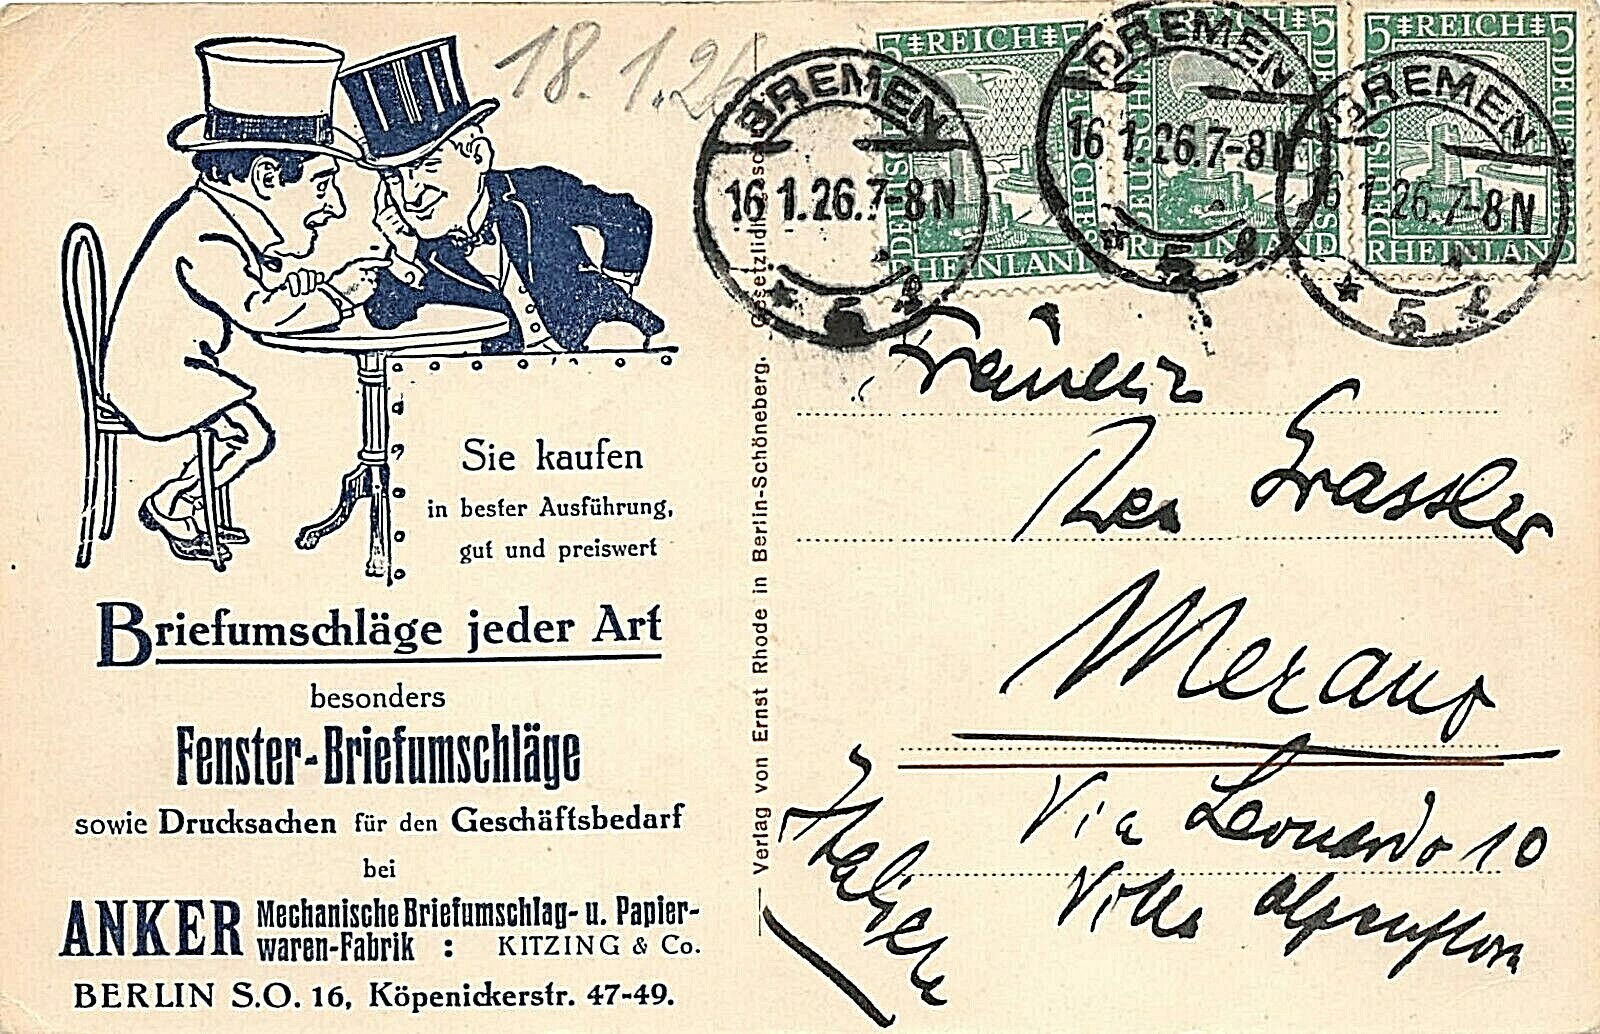 18.1.26
Sie kaufen
in bester Ausführung,
gut und preiswert
Briefumschläge jeder Art
besonders
Fenster-Briefumschläge
sowie Drucksachen für den Geschäftsbedarf
bei
ANKER Mechanische Briefumschlag- u. Papier-
waren-Fabrik : KITZING & Co.
BERLIN S.O. 16, Köpenickerstr. 47-49.
Verlag von Ernst Rhode in Berlin-Schöneberg. Gesetzlich
5 REICH 5
DEUTSCHES
RHEINLAND
REICH 5
DEUTSCHES
RHEINLAND
5 REICH 5
DEUTSCHES
RHEINLAND
BREMEN
16.1.26.7-8N
* 5 *
BREMEN
16.1.26.7-8N
* 5
BREMEN
16.1.26.7-8N
* 5
Fräulein
Grassler
Merano
Via Leonardo 10
Villa Alpenflora
Italien